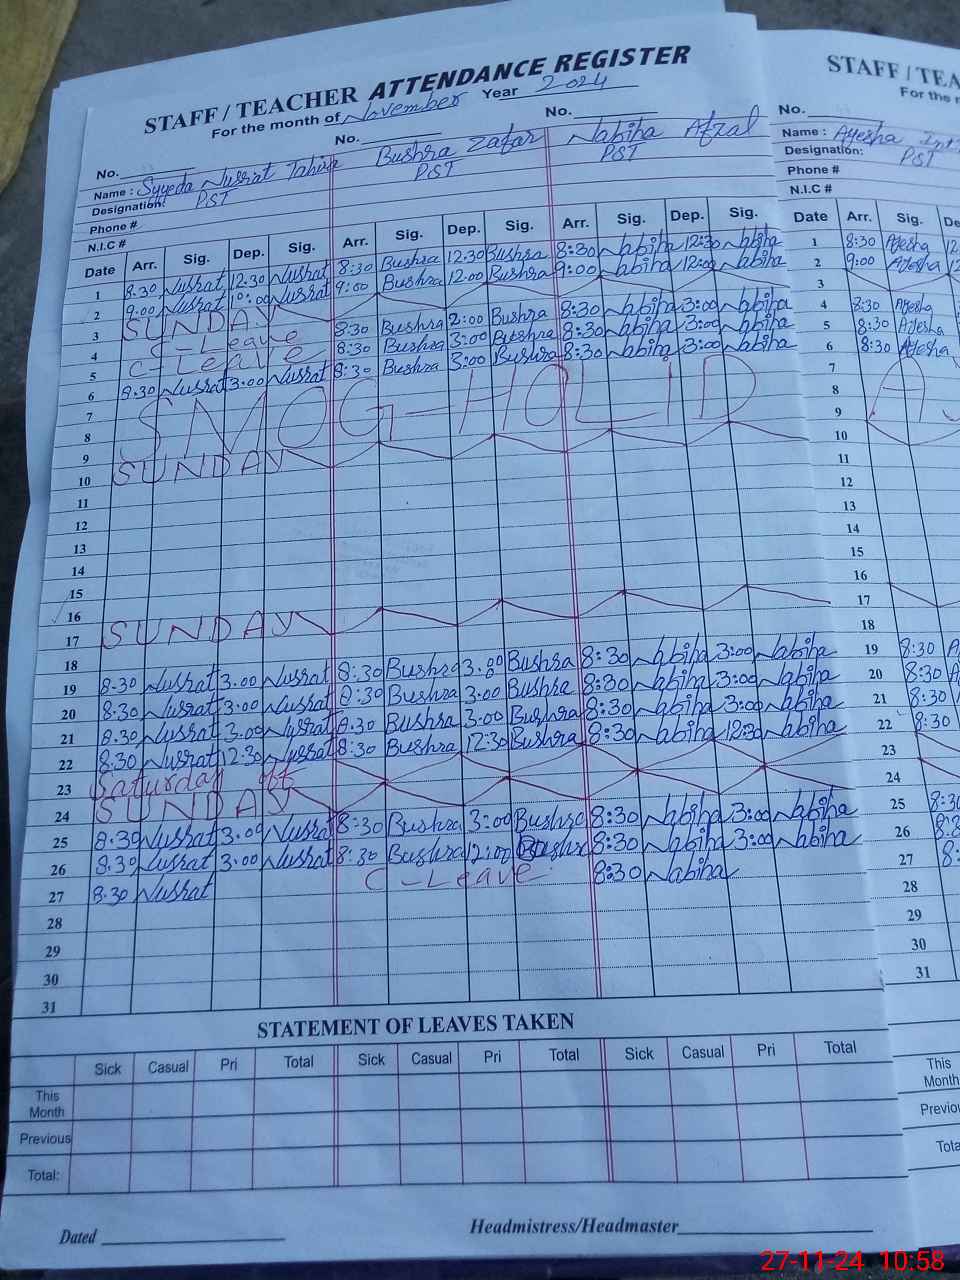 STAFF / TEACHER ATTENDANCE REGISTER
For the month of November Year 2024
No. No. No.
Name : Syyeda Nusrat Tahira Bushra Zafar Nabiha Afzal
Designation: PST PST PST
Phone #
N.I.C #
Date Arr. Sig. Dep. Sig. Arr. Sig. Dep. Sig. Arr. Sig. Dep. Sig.
1 8.30 Nusrat 12.30 Nusrat 8:30 Bushra 12.30 Bushra 8:30 Nabiha 12:30 Nabiha
2 9.00 Nusrat 10:00 Nusrat 9:00 Bushra 12.00 Bushra 9:00 Nabiha 12:00 Nabiha
3 SUNDAY
4 C-Leave 8:30 Bushra 2:00 Bushra 8:30 Nabiha 3:00 Nabiha
5 C-Leave 8:30 Bushra 3:00 Bushra 8:30 Nabiha 3:00 Nabiha
6 8.30 Nusrat 3.00 Nusrat 8:30 Bushra 3:00 Bushra 8:30 Nabiha 3:00 Nabiha
7
8 SMOG-HOLID
9
10 SUNDAY
11
12
13
14
15
16
17 SUNDAY
18
19 8.30 Nusrat 3.00 Nusrat 8:30 Bushra 3:00 Bushra 8:30 Nabiha 3:00 Nabiha
20 8.30 Nusrat 3.00 Nusrat 8:30 Bushra 3:00 Bushra 8:30 Nabiha 3:00 Nabiha
21 8.30 Nusrat 3.00 Nusrat 8.30 Bushra 3:00 Bushra 8:30 Nabiha 3:00 Nabiha
22 8.30 Nusrat 12.30 Nusrat 8:30 Bushra 12:30 Bushra 8:30 Nabiha 12:30 Nabiha
23 Saturday off
24 SUNDAY
25 8.30 Nusrat 3.00 Nusrat 8:30 Bushra 3:00 Bushra 8:30 Nabiha 3:00 Nabiha
26 8.30 Nusrat 3.00 Nusrat 8:30 Bushra 12:00 Bushra 8:30 Nabiha 3:00 Nabiha
27 8.30 Nusrat C-Leave 8:30 Nabiha
28
29
30
31
STATEMENT OF LEAVES TAKEN
Sick Casual Pri Total Sick Casual Pri Total Sick Casual Pri Total
This Month
Previous
Total:
Dated Headmistress/Headmaster
STAFF / TEA
For the
No.
Name : Ayesha
Designation: PST
Phone #
N.I.C #
Date Arr. Sig.
1 8:30 Ayesha
2 9:00 Ayesha
3
4 8:30 Ayesha
5 8:30 Ayesha
6 8:30 Ayesha
7
8 A
9
10
11
12
13
14
15
16
17
18
19 8:30
20 8:30
21 8:30
22 8:30
23
24
25
26
27
28
29
30
31
This
Month
27-11-24 10:58